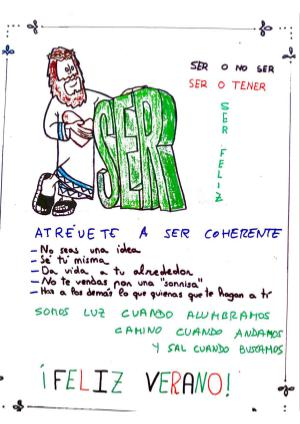 SER O NO SER
SER O TENER
SER FELIZ
SER
ATRÉVETE A SER COHERENTE
- No seas una idea
- Sé tú misma
- Da vida a tu alrededor
- No te vendas por una "sonrisa"
- Haz a los demás lo que quieras que te hagan a tí
SOMOS LUZ CUANDO ALUMBRAMOS
CAMINO CUANDO ANDAMOS
Y SAL CUANDO BUSCAMOS
¡FELIZ VERANO!